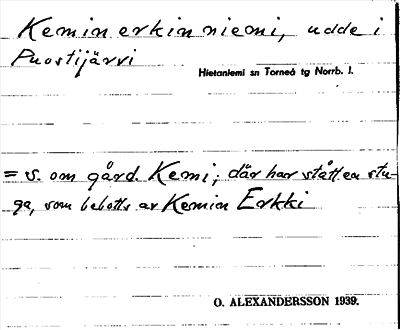 Keminerkinniemi, udde i
Puostijärvi
Hietaniemi sn Torneå tg Norrb. l.
= v. om gård. Kemi; där har stått en stu-
ga, som bebotts av Kemin Erkki
O. ALEXANDERSSON 1939.